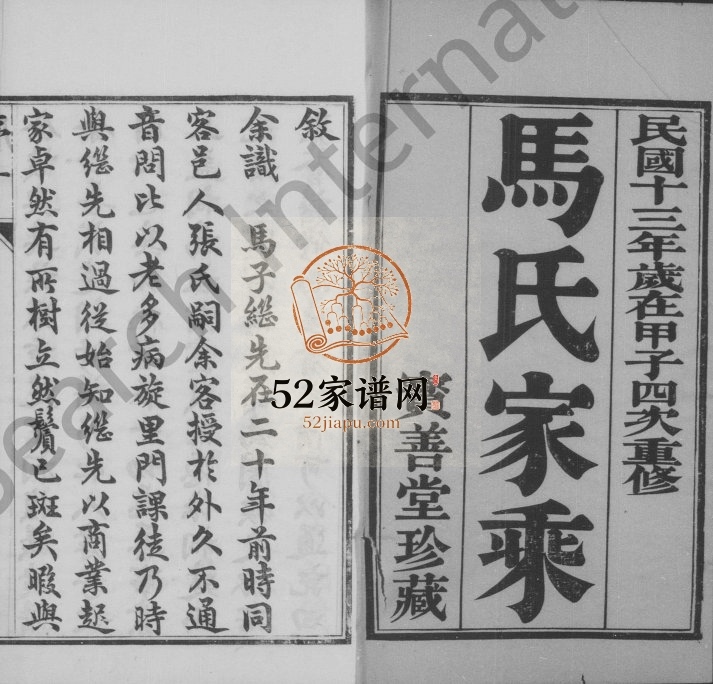 民國十三年歲在甲子四次重修
馬氏家乘
善堂珍藏
敘
余識 馬子繼先在二十年前時同
客邑人張氏嗣余客授於外久不通
音問比以老多病旋里門課徒乃時
與繼先相過從始知繼先以商業起
家卓然有所樹立然鬢已斑矣暇與
52家谱网
52jiapu.com
Search International